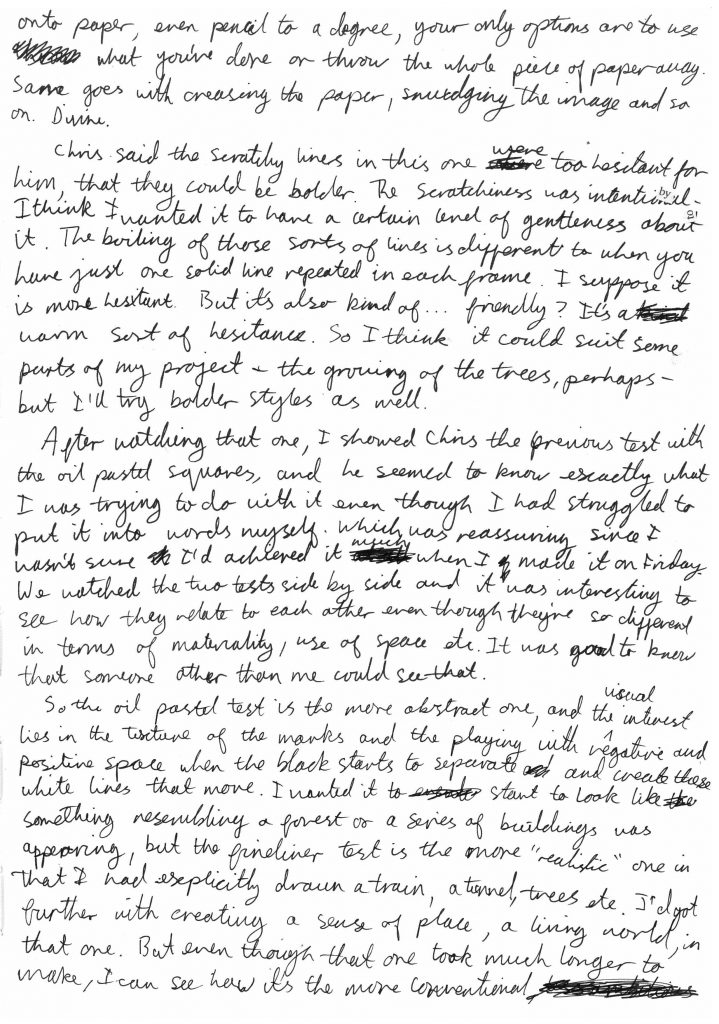 onto paper, even pencil to a degree, your only options are to use
what you've done or throw the whole piece of paper away.
Same goes with creasing the paper, smudging the image and so
on. Divine.
Chris said the scratchy lines in this one were too hesitant for
him, that they could be bolder. The scratchiness was intentional -
I think I wanted it to have a certain level of gentleness about
it. The boiling of those sorts of lines is different to when you
have just one solid line repeated in each frame. I suppose it
is more hesitant. But it's also kind of... friendly? It's a
warm sort of hesitance. So I think it could suit some
parts of my project - the growing of the trees, perhaps -
but I'll try bolder styles as well.
After watching that one, I showed Chris the previous test with
the oil pastel squares, and he seemed to know exactly what
I was trying to do with it even though I had struggled to
put it into words myself. Which was reassuring since I
wasn't sure I'd achieved it much when I made it on Friday.
We watched the two tests side by side and it was interesting to
see how they relate to each other even though they're so different
in terms of materiality, use of space etc. It was good to know
that someone other than me could see that.
So the oil pastel test is the more abstract one, and the visual interest
lies in the texture of the marks and the playing with negative and
positive space when the black starts to separate and create these
white lines that move. I wanted it to start to look like
something resembling a forest or a series of buildings was
appearing, but the fineliner test is the more "realistic" one in
that I had explicitly drawn a train, a tunnel, trees etc. I'd got
further with creating a sense of place, a living world, in
that one. But even though that one took much longer to
make, I can see how it's the more conventional,